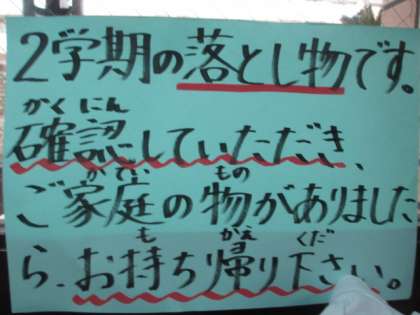 2学期の落とし物です。
かくにん
確認していただき、
かてい もの
ご家庭の物がありました
も かえ くだ
ら、お持ち帰り下さい。